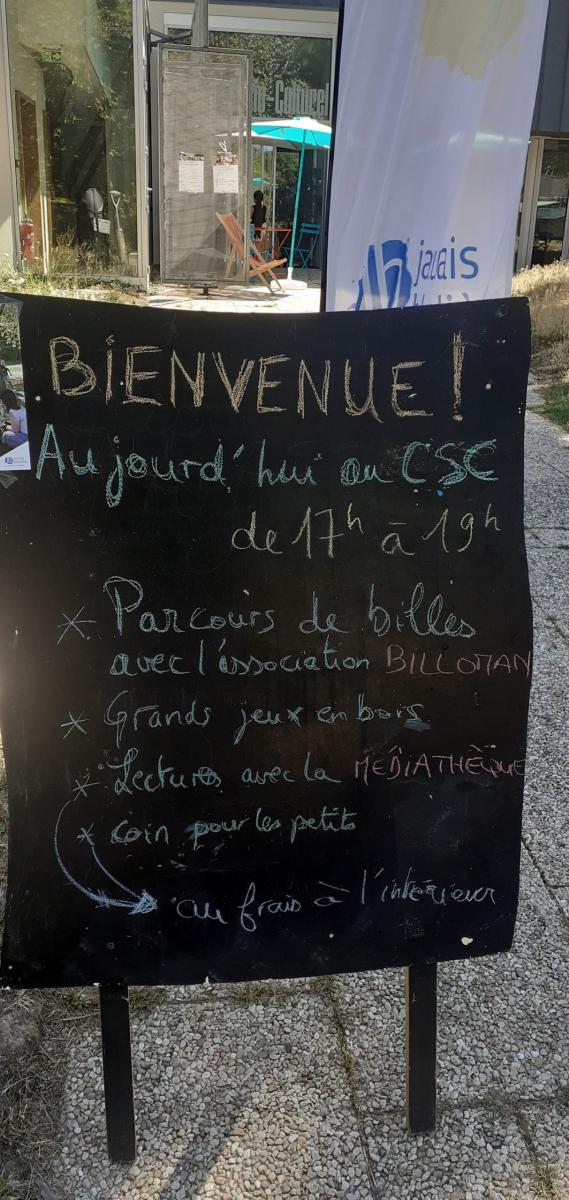 io-Culturel
jalais
BIENVENUE !
Aujourd'hui au CSC
de 17h à 19h
* Parcours de billes
avec l'association BILLOMAN
* Grands jeux en bois
* Lectures avec la MÉDIATHÈQUE
* coin pour les petits
au frais à l'intérieur